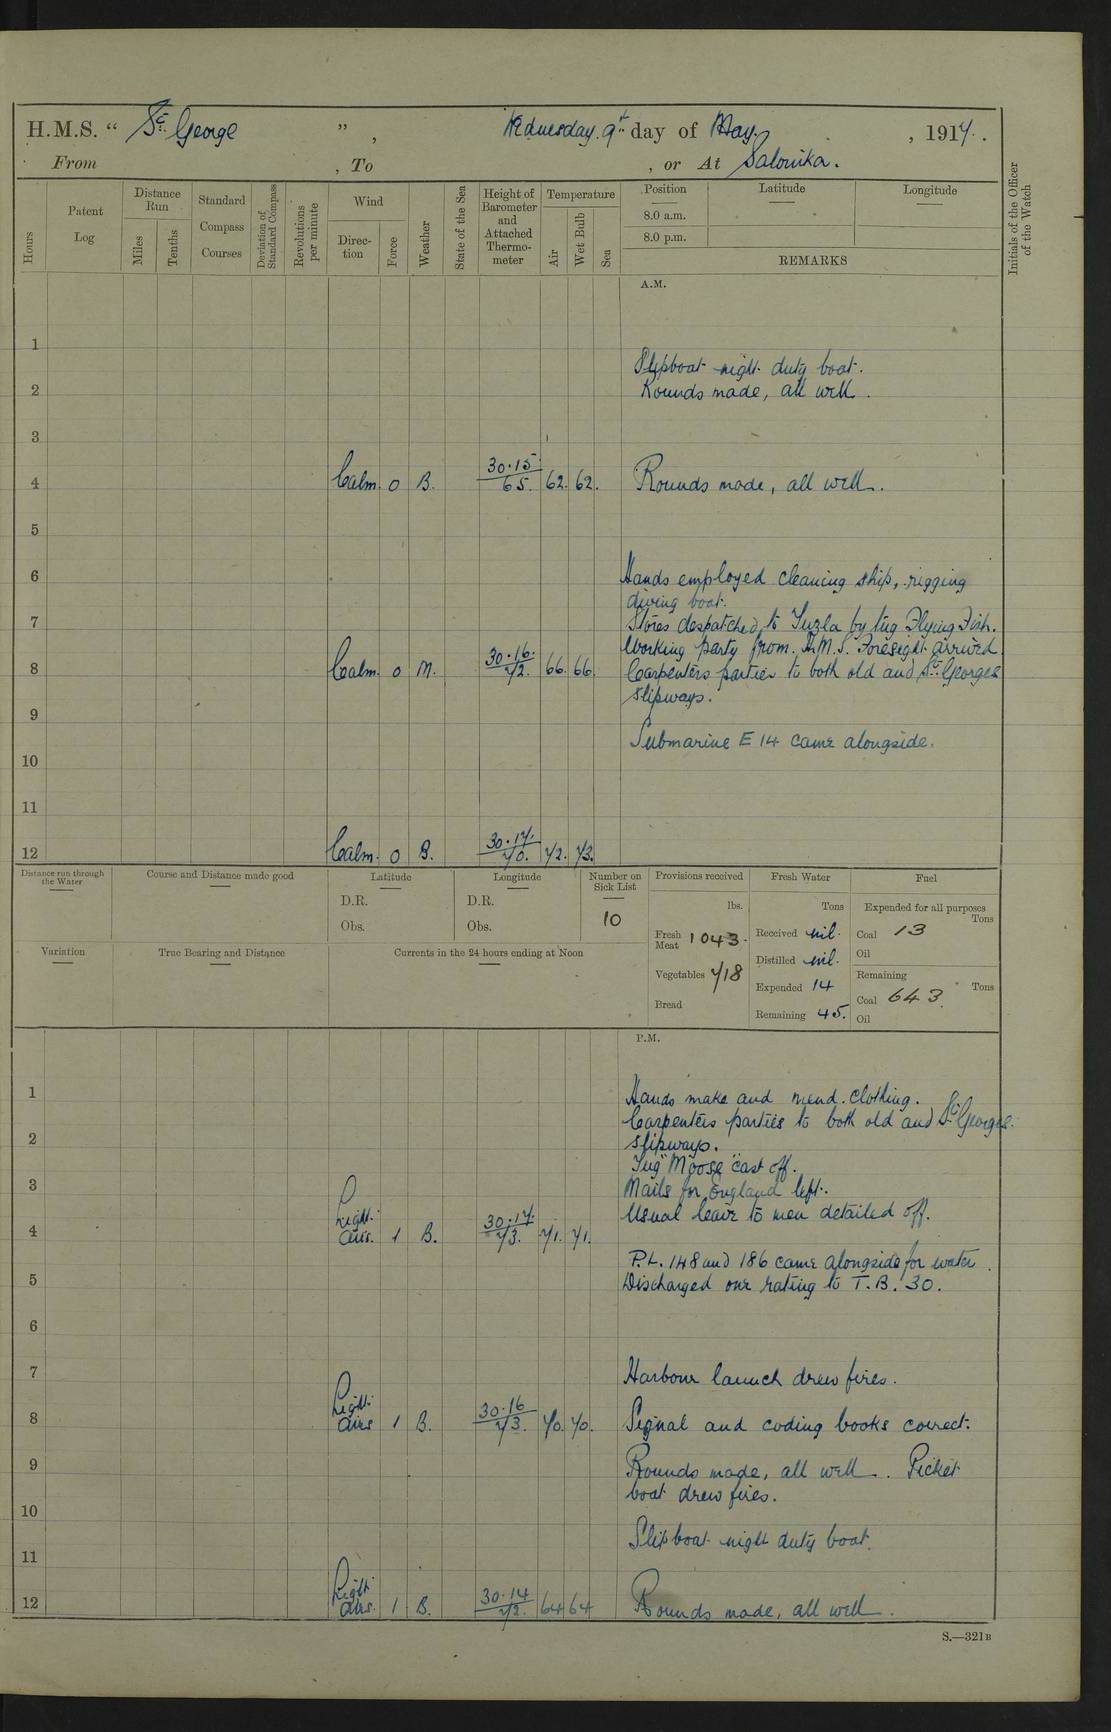 H.M.S. “ St. George ” , Wednesday. 9th day of May. , 1917.
From , To , or At Salonika.
Hours
Patent Log
Distance Run
Miles
Tenths
Standard Compass Courses
Deviation of Standard Compass
Revolutions per minute
Wind
Direc-tion
Force
Weather
State of the Sea
Height of Barometer and Attached Thermo-meter
Temperature
Air
Wet Bulb
Sea
Position Latitude Longitude
8.0 a.m.
8.0 p.m.
REMARKS
Initials of the Officer of the Watch
A.M.
1
Slipboat night duty boat.
2 Rounds made, all well.
3
4 Calm. 0 B. 30.15 65. 62. 62. Rounds made, all well.
5
6 Hands employed cleaning ship, rigging
diving boat.
7 Stores despatched to Tuzla by tug Flying Fish.
Working party from H.M.S. Foresight arrived.
8 Calm. 0 M. 30.16. 72. 66. 66. Carpenters parties to both old and St. Georges
slipways.
9
Submarine E 14 came alongside.
10
11
12 Calm. 0 B. 30.17. 70. 72. 73.
Distance run through the Water
Course and Distance made good
Latitude
D.R.
Obs.
Longitude
D.R.
Obs.
Number on Sick List
10
Provisions received
lbs.
Fresh Meat 1043.
Vegetables 718
Bread
Fresh Water
Tons
Received nil.
Distilled nil.
Expended 14
Remaining 45.
Fuel
Expended for all purposes
Tons
Coal 13
Oil
Remaining
Tons
Coal 643.
Oil
Variation
True Bearing and Distance
Currents in the 24 hours ending at Noon
P.M.
1 Hands make and mend clothing.
Carpenters parties to both old and St. Georges
2 slipways.
Tug "Moose" cast off.
3 Mails for England left.
4 Light airs. 1 B. 30.17. 73. 71. 71. Usual leave to men detailed off.
P.L. 148 and 186 came alongside for water.
5 Discharged one rating to T.B. 30.
6
7 Harbour launch drew fires.
8 Light airs 1 B. 30.16 73. 70. 70. Signal and coding books correct.
9 Rounds made, all well. Picket
boat drew fires.
10
Slipboat night duty boat.
11
12 Light airs. 1 B. 30.14 72. 64 64 Rounds made, all well.
S.—321B